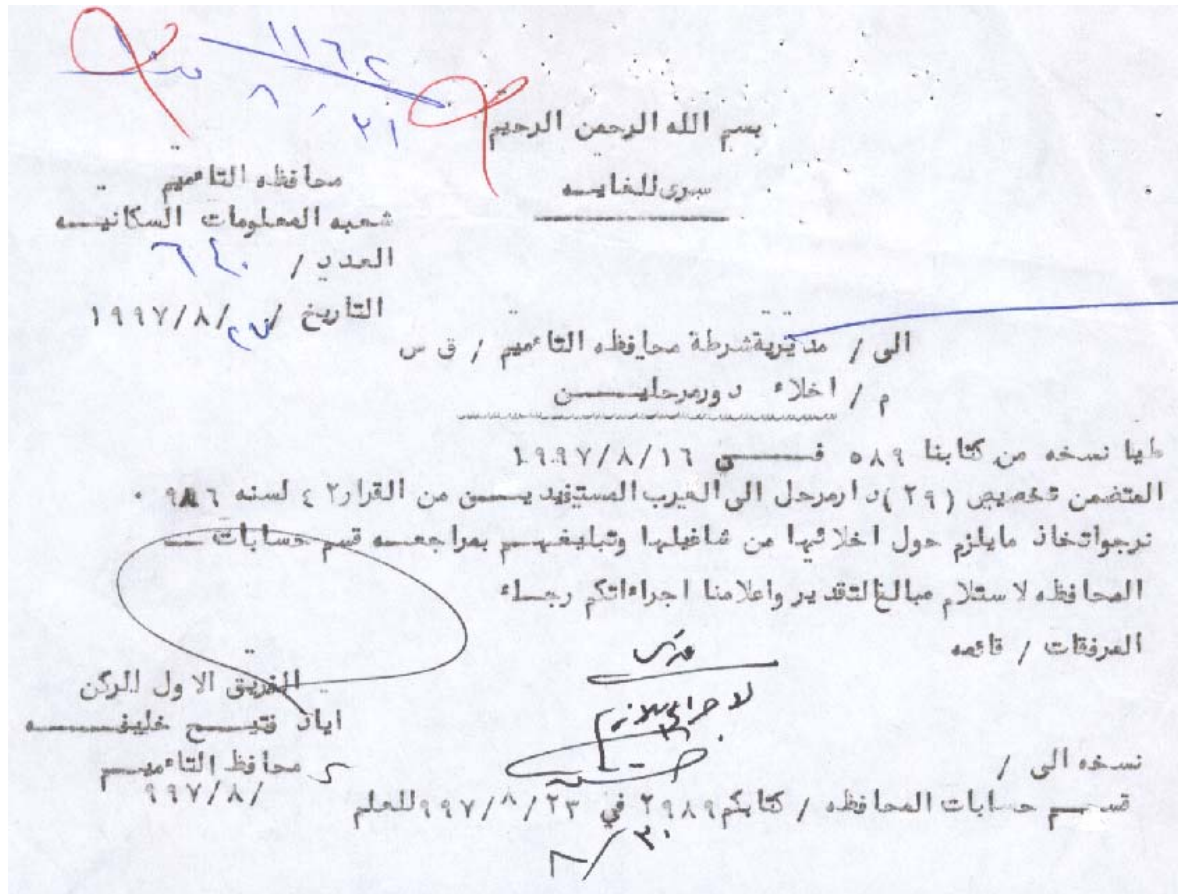 ١١٦٢
٣١ ٨
بسم الله الرحمن الرحيم
سرى للغايــه
محافظه التاءميم
شعبه المعلومات السكانيــه
العدد / ٦٤٠
التاريخ / ٢٧/ ١٩٩٧/٨
الى / مديريةشرطة محافظه التاءميم / ق س
م / اخلاء دورمرحليــــن
طيا نسخه من كتابنا ٥٨٩ فــــي ١٩٩٧/٨/١٦
المتضمن تخصيص (٢٩)دارمرحل الى العرب المستفيديــن من القرار٤٢ لسنه ٩٨٦ ٠
نرجواتخاذ مايلزم حول اخلائها من شاغليها وتبليغهــم بمراجعــه قسم حسابات
المحافظه لاستلام مبالغ التقدير واعلامنا اجراءاتكم رجــاء
المرفقات / قائمه
لاجراء اللازم
الفريق الاول الركن
اياد فتيــح خليفــــه
محافظ التاءميــم
/٩٩٧/٨
نسخه الى /
قســم حسابات المحافظه / كتابكم٢٩٨٩ في ٩٩٧/٨/٢٣ للعلم
٨/٣٠